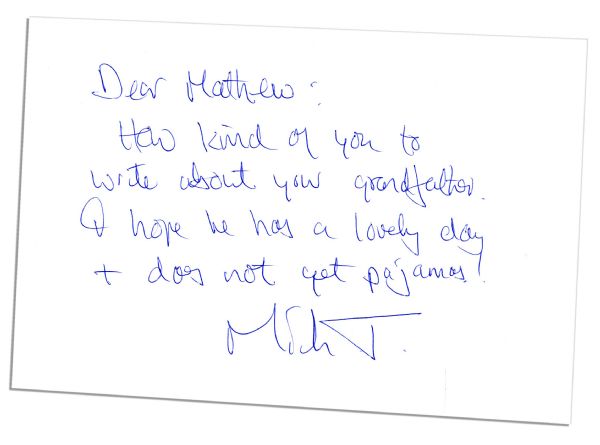 Dear Mathew:
How kind of you to
write about your grandfather.
I hope he has a lovely day
+ does not get pajamas!
Mich T.